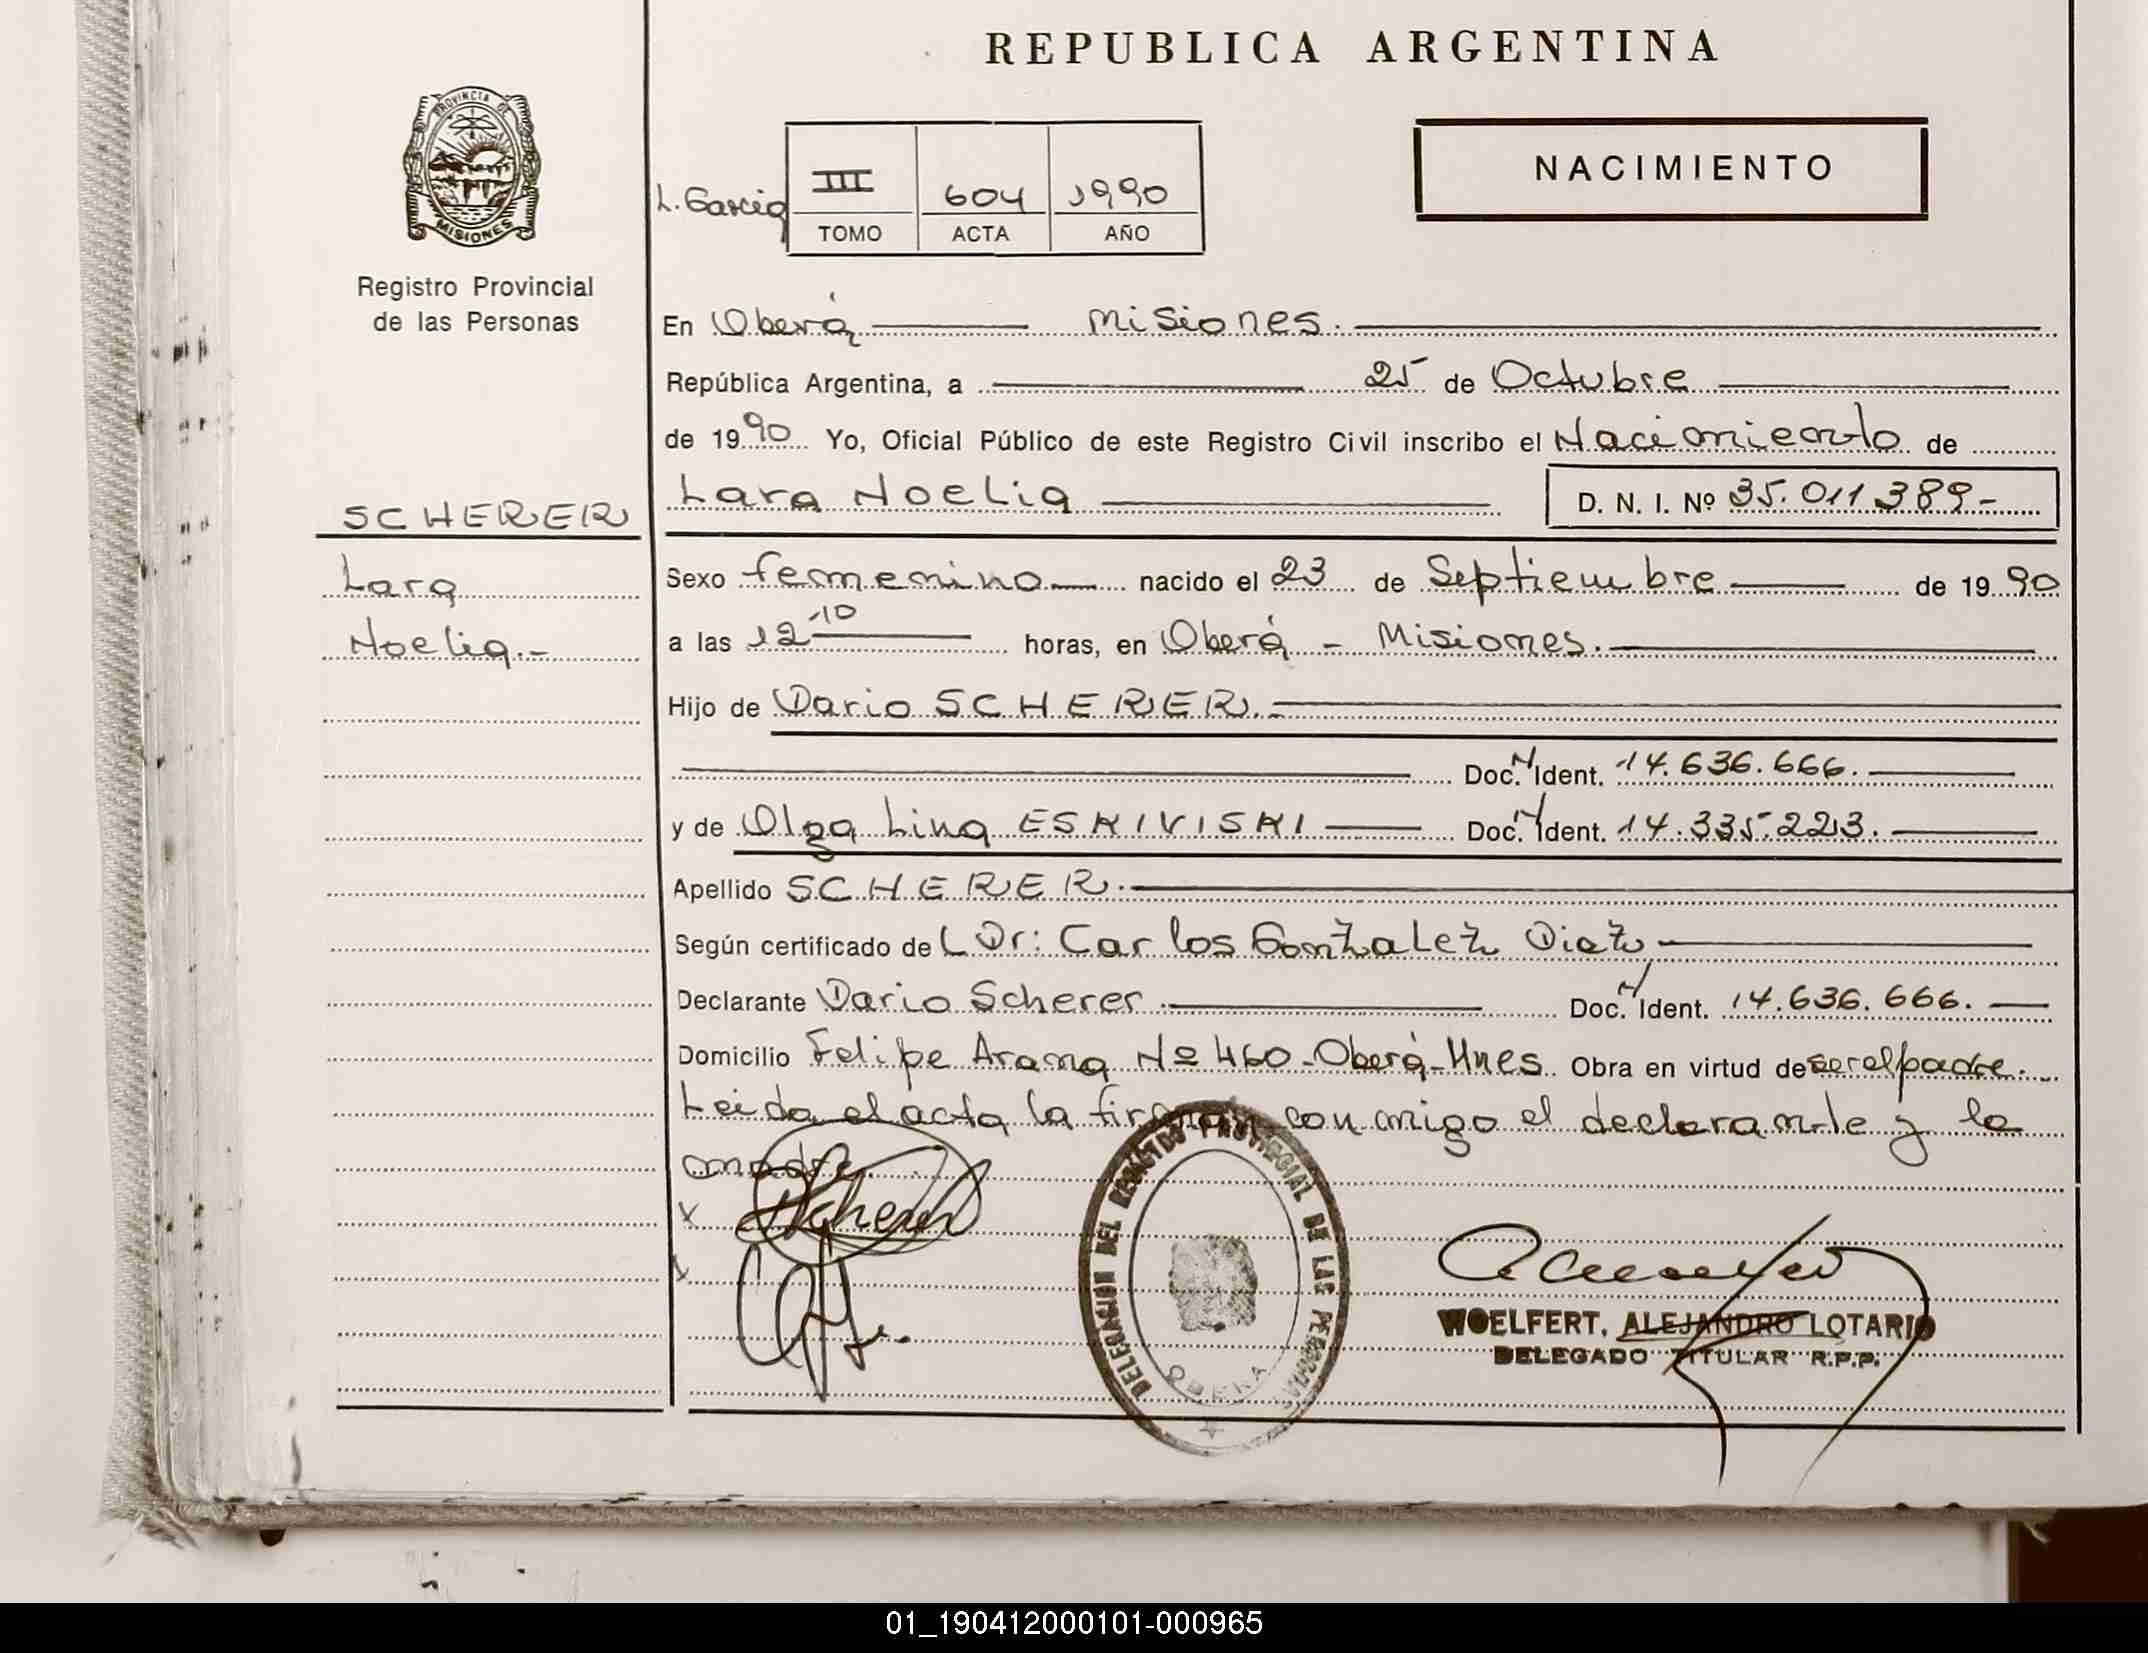 REPUBLICA ARGENTINA
PROVINCIA DE
MISIONES
Registro Provincial
de las Personas
NACIMIENTO
L. Garcia
III 604 1990
TOMO ACTA AÑO
En Oberá Misiones.
República Argentina, a 25 de Octubre
de 1990 Yo, Oficial Público de este Registro Civil inscribo el Nacimiento de
SCHERER
Lara Noelia D. N. I. Nº 35.011.389-
Lara
Sexo femenino nacido el 23 de Septiembre de 1990
Noelia.-
a las 12 10 horas, en Oberá - Misiones.
Hijo de Dario SCHERER.-
Doc. N Ident. 14.636.666.
y de Olga Lina ESKIVISKI Doc. N Ident. 14.335.223.
Apellido SCHERER.
Según certificado de L Dr: Carlos Gonzalez Diaz
Declarante Dario Scherer. Doc. N Ident. 14.636.666.
Domicilio Felipe Arana Nº 460-Oberá-Mnes. Obra en virtud de ser el padre.
Leida el acta la firman conmigo el declarante y la
madre.
x Scherer
x
DELEGACIÓN DEL REGISTRO PROVINCIAL DE LAS PERSONAS
OBERA
WOELFERT, ALEJANDRO LOTARIO
DELEGADO TITULAR R.P.P.
01_190412000101-000965